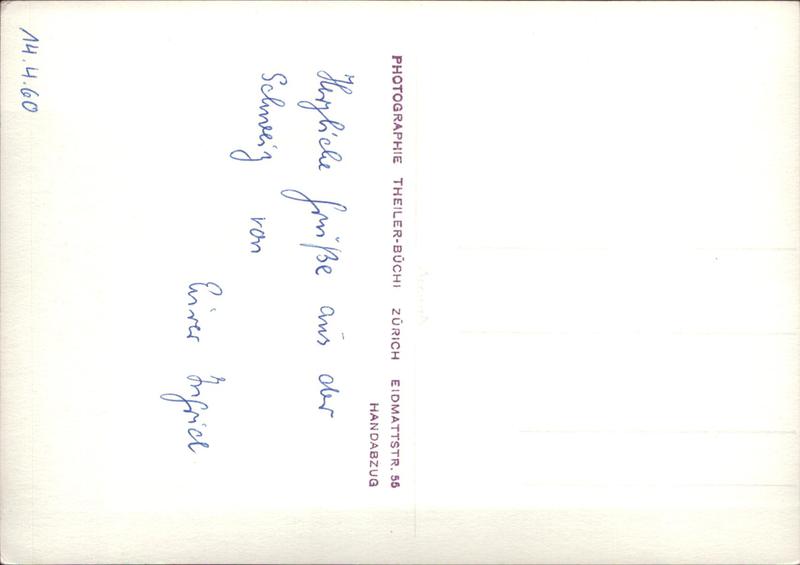 14.4.60
Herzliche Grüße aus der
Schweiz von
Eurer Ingrid
PHOTOGRAPHIE THEILER-BÜCHI ZÜRICH EIDMATTSTR. 55
HANDABZUG